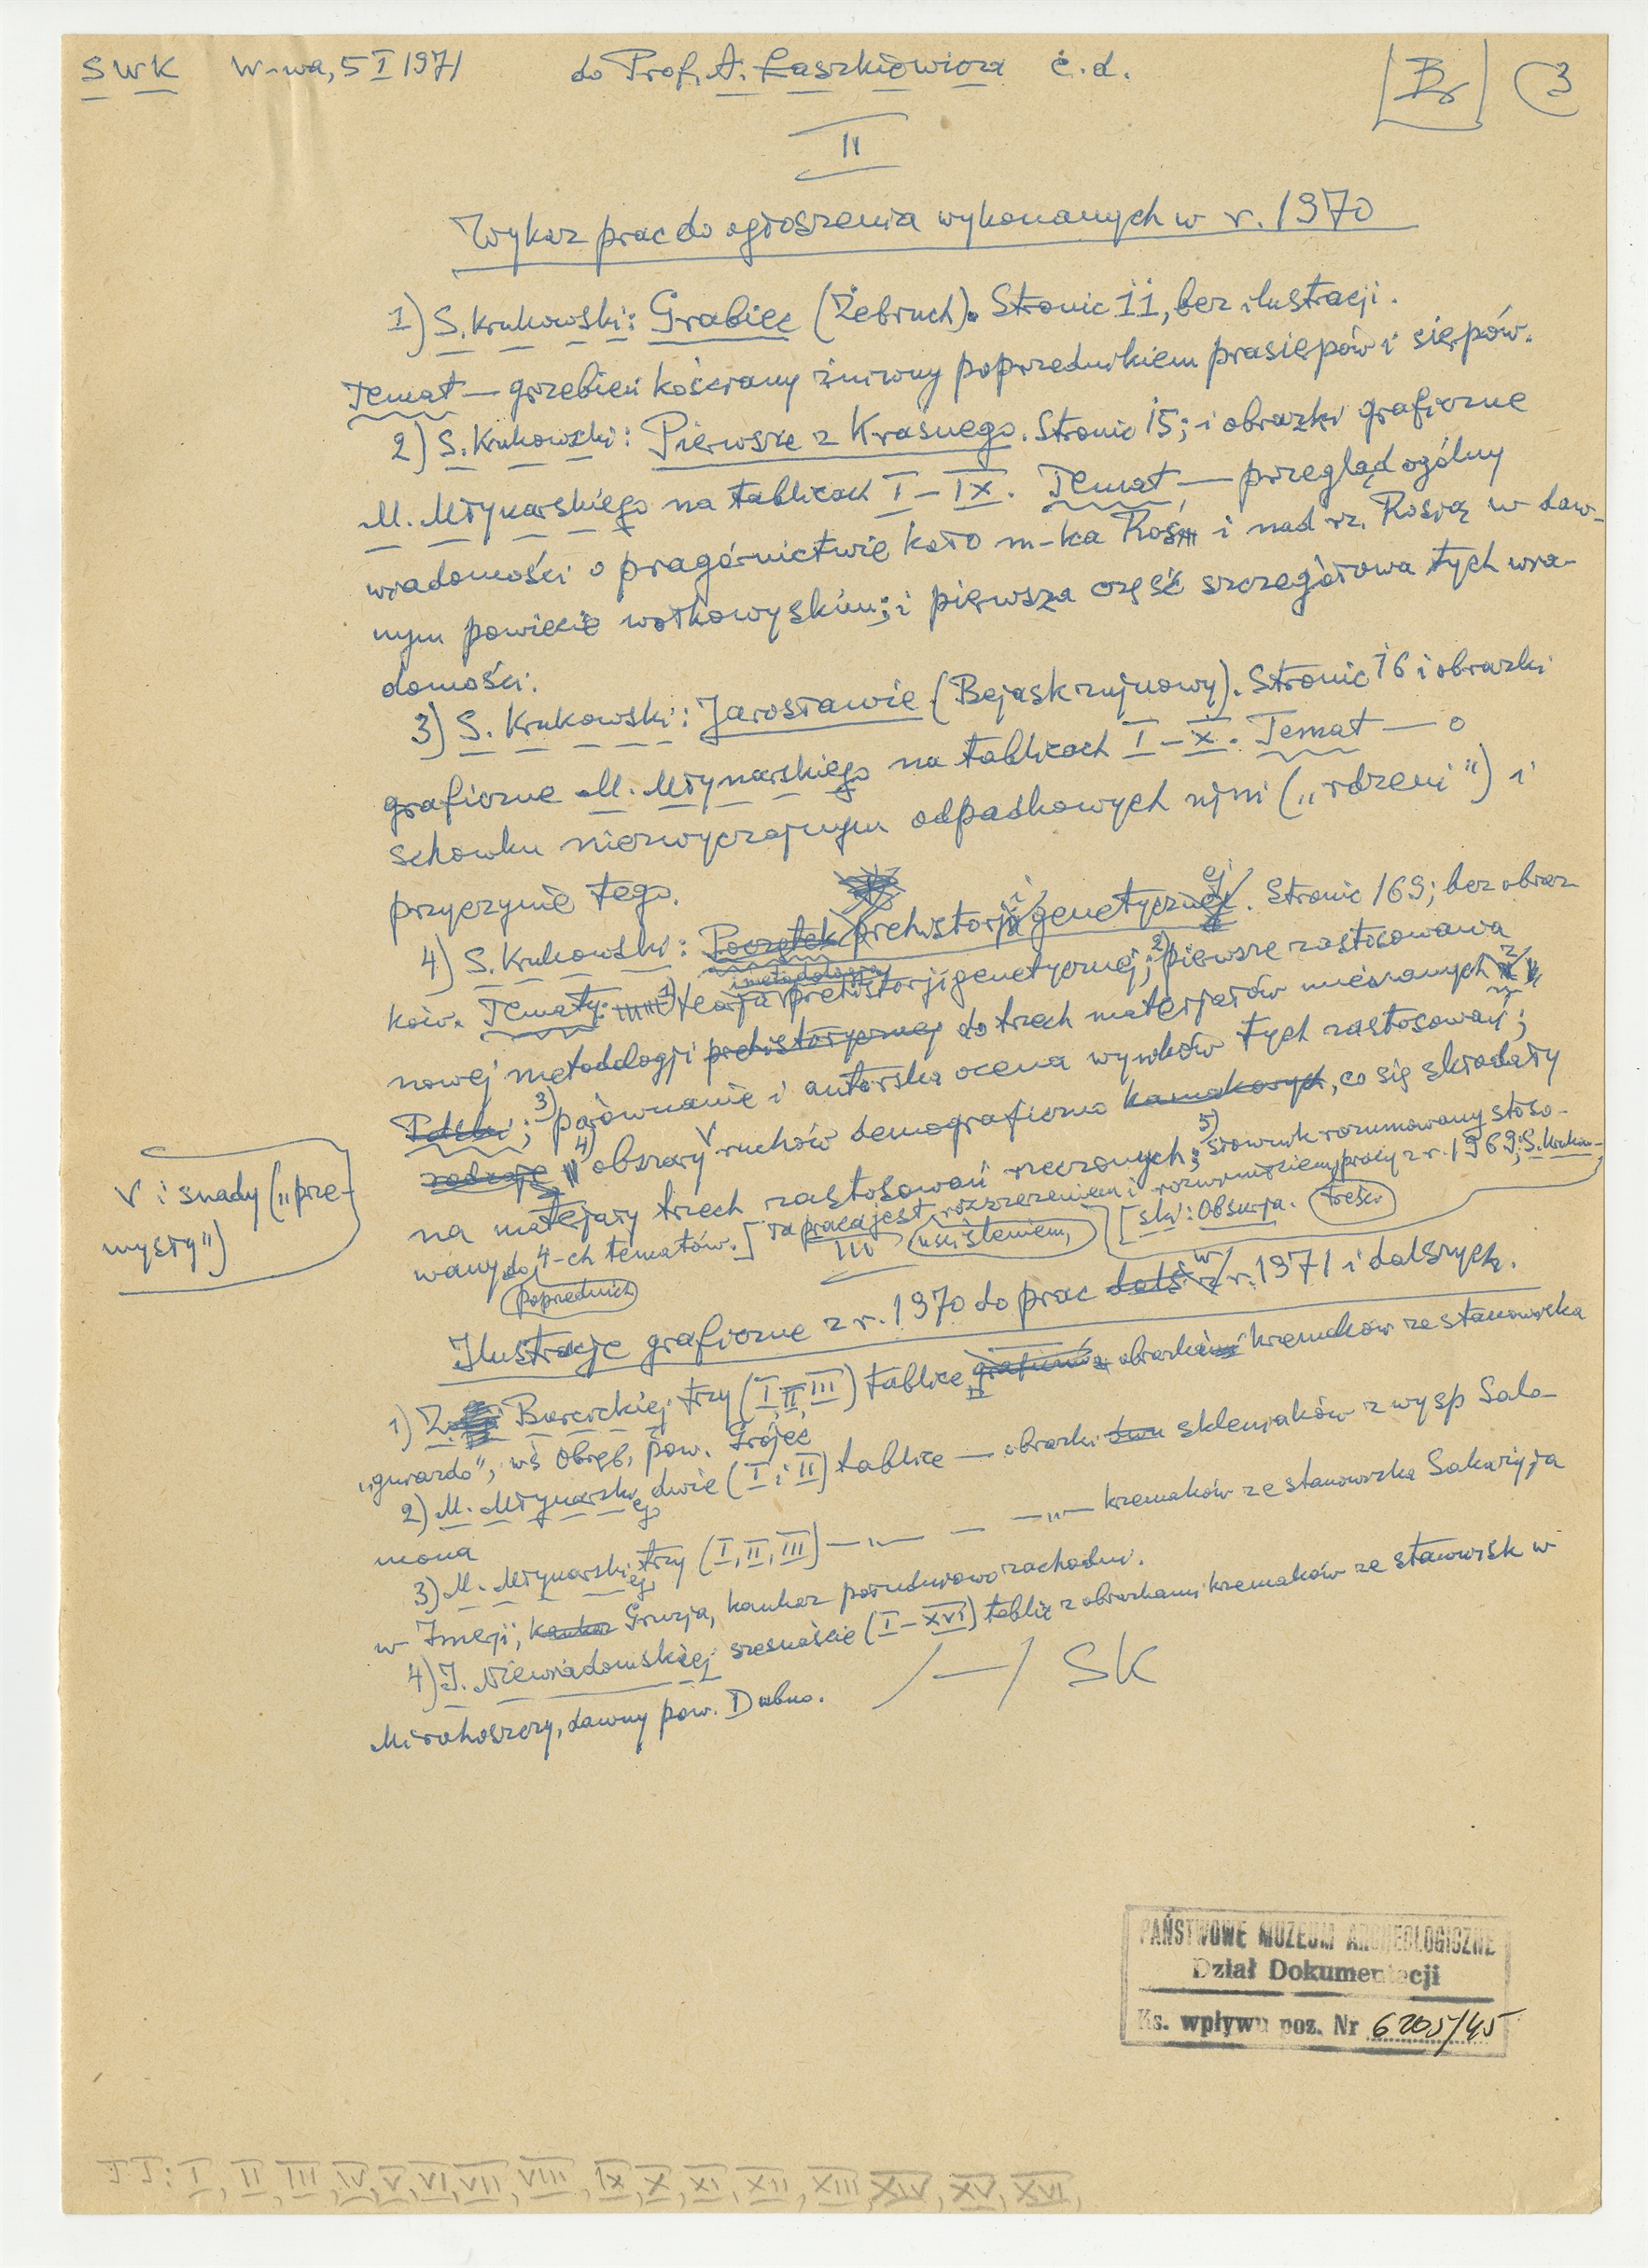 SWK W-wa, 5 I 1971 do Prof. A. Łaszkiewicza c.d. [Br] 3
II
Wykaz prac do ogłoszenia wykonanych w r. 1970
1) S. Krukowski: Grabiec (Żebruch). Stronic 11, bez ilustracji.
Temat — grzebień kościany żniwny poprzednikiem prasierpów i sierpów.
2) S. Krukowski: Pierwsze z Krasnego. Stronic 15; i obrazki graficzne
M. Młynarskiego na tablicach I–IX. Temat — przegląd ogólny
wiadomości o pragórnictwie koło m-ka Roś i nad rz. Rosią w daw-
nym powiecie wołkowyskim; i pierwsza część szczegółowa tych wia-
domości.
3) S. Krukowski: Jarosławie (Bejaskrujnowy). Stronic 16 i obrazki
graficzne M. Młynarskiego na tablicach I–X. Temat — o
schowku niezwyczajnym odpadkowych nimi („rdzeni") i
przyczynie tego.
4) S. Krukowski: Początek prehistorji genetycznej. Stronic 169; bez obraz-
ków. Tematy: 1) teorja i metodologja prehistorji genetycznej; 2) pierwsze zastosowania
nowej metodologji prehistorycznej do trzech materjałów mieszanych z
Polski; 3) porównanie i autorska ocena wyników tych zastosowań;
4) obszary V ruchów demograficzno kamakowych, co się składały
V i snady („prze-
mysły")
na materjały trzech zastosowań rzeczonych; 5) słownik rozumowany stoso-
wany do 4-ch tematów. [Ta praca jest rozszerzeniem i rozwinięciem, uściśleniem, pracy z r. 1969; S. Krukow-
poprzednich
[ski: Obsurja. treści
III
Ilustracje graficzne z r. 1970 do prac w r. 1971 i dalszych.
1) Z. Burcickiej trzy (I, II, III) tablice obrazków krzemaków ze stanowiska
„gwardo", wś Obręb, pow. Grójec
2) M. Młynarskiego dwie (I i II) tablice — obrazki skleniaków z wysp Salo-
mona
3) M. Młynarskiego trzy (I, II, III) —„— — —„— krzemaków ze stanowiska Sakażyja
w Imerji, Gruzja, Kaukaz południowo zachodni.
4) J. Niewiadomskiej szesnaście (I–XVI) tablic z obrazkami krzemaków ze stanowisk w
Mirohoszczy, dawny pow. Dubno. /—/ SK
PAŃSTWOWE MUZEUM ARCHEOLOGICZNE
Dział Dokumentacji
Ks. wpływu poz. Nr 6205/45
TT: I, II, III, IV, V, VI, VII, VIII, IX, X, XI, XII, XIII, XIV, XV, XVI,